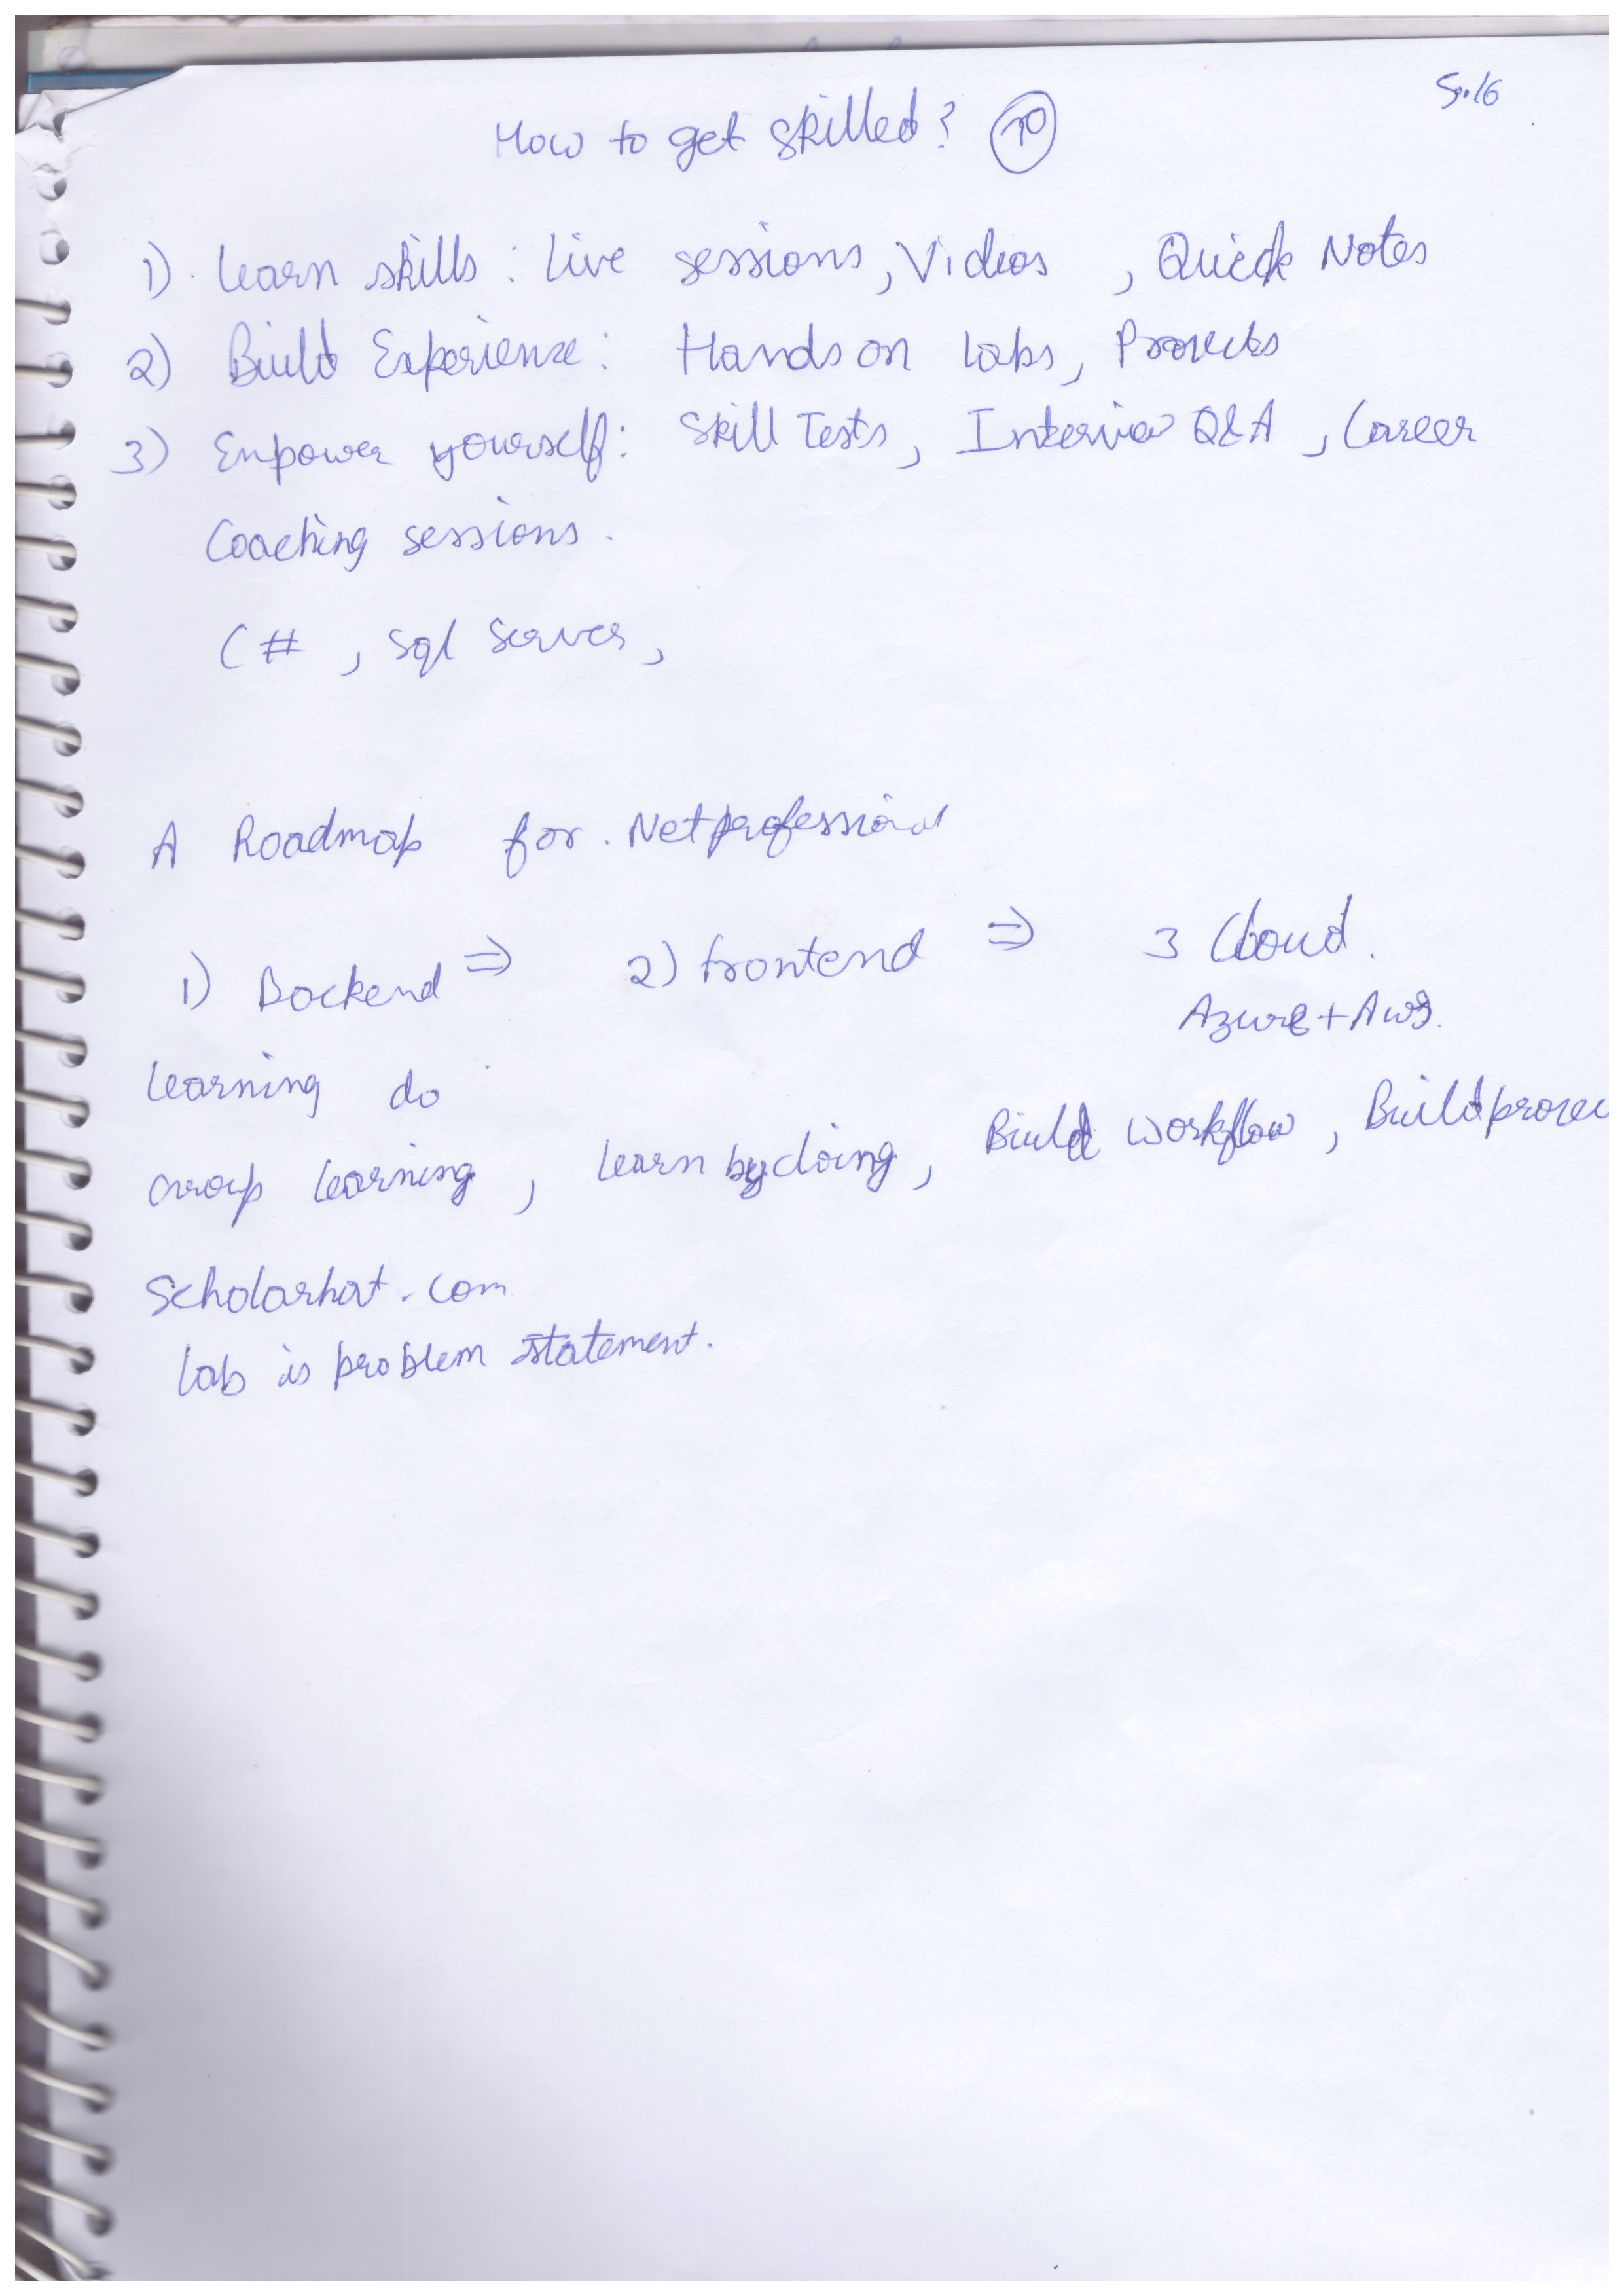 How to get skilled?
1) Learn skills : Live sessions, Videos , Quick Notes
2) Build Experience: Hands on labs, Projects
3) Empower yourself: Skill Tests, Interview Q&A , Career
Coaching sessions.
C# , Sql Server,
A Roadmap for .Net professional
1) Backend ⇒ 2) frontend ⇒ 3 Cloud.
Azure + Aws.
Learning do
Group learning , learn by doing, Build workflow , Build
Scholarhat.com
Lab is problem statement.